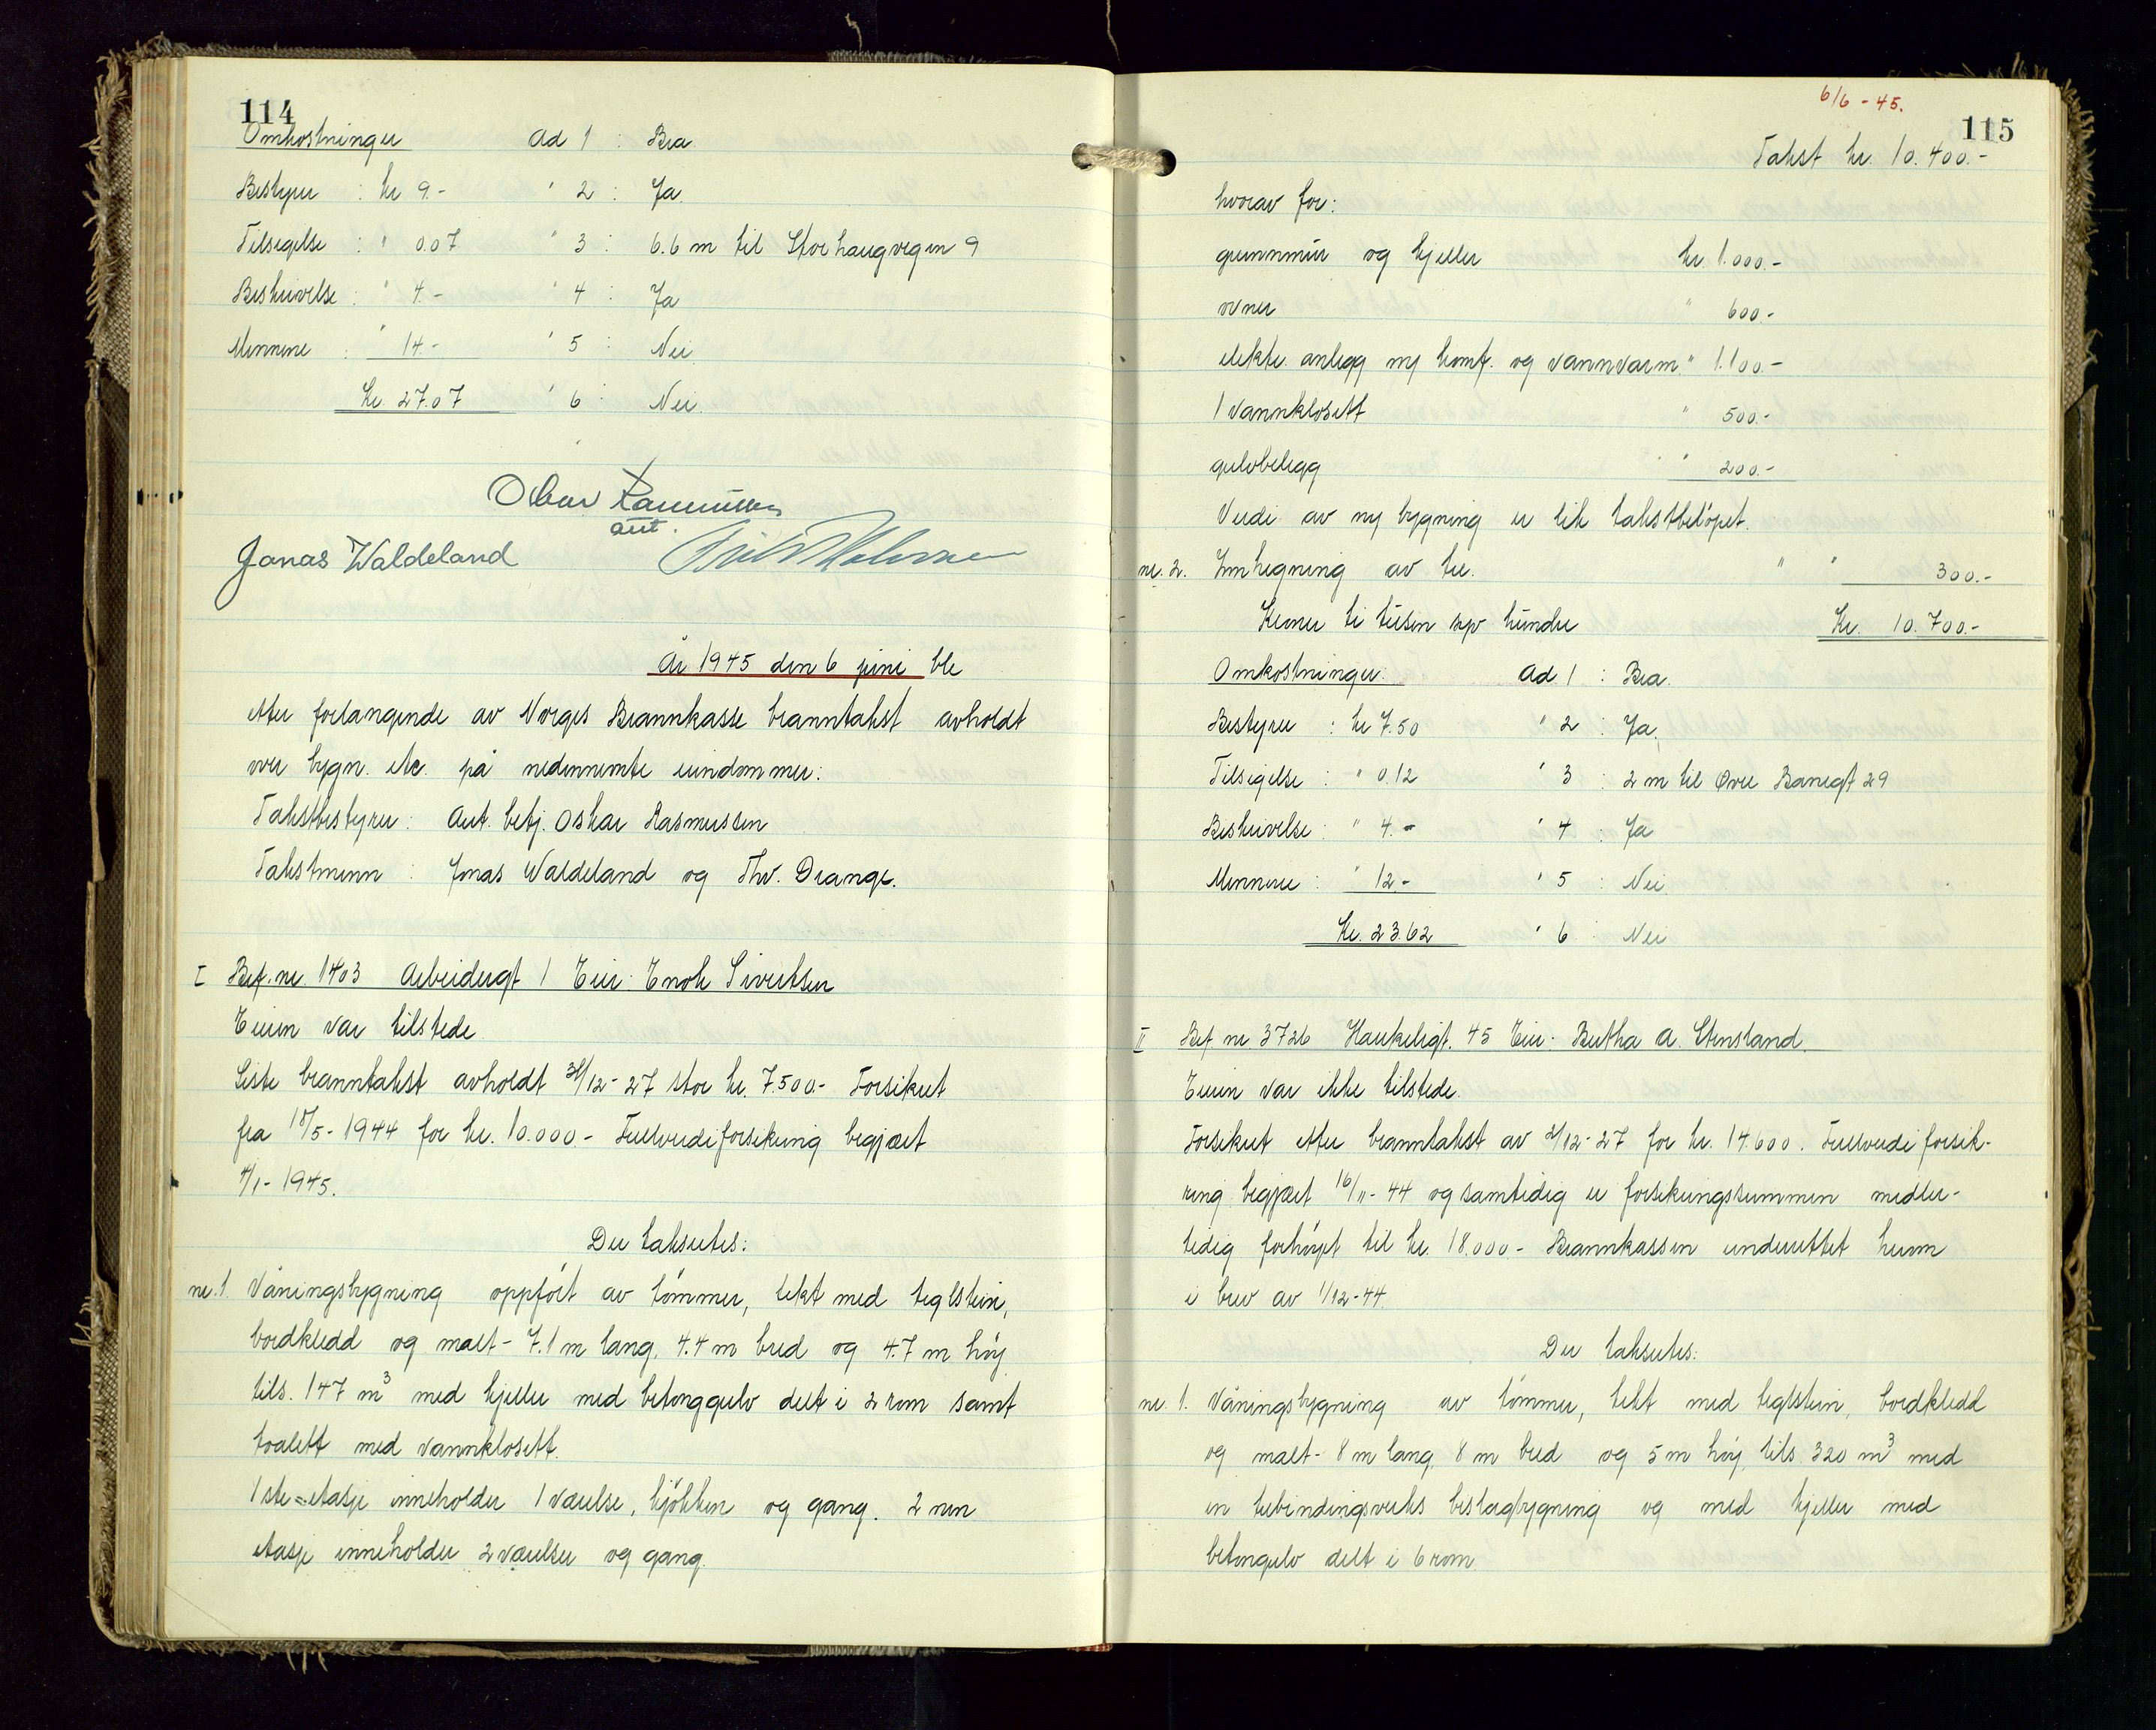 114
Omkostninger ad 1 : Bra.
Bestyrer : kr 9.- " 2 : Ja.
Tilsigelse : " 0.07 " 3 : 6.6 m til Storhaugvegen 9
Beskrivelse : " 4.- " 4 : Ja
Mennene : " 14.- " 5 : Nei.
Kr. 27.07 " 6 : Nei.
Oskar Rasmussen
aut.
Jonas Waldeland
År 1945 den 6 juni ble
etter forlangende av Norges Brannkasse branntakst avholdt
over bygn. etc. på nedennevnte eiendommer:
Takstbestyrer: Aut. betj. Oskar Rasmussen
Takstmenn : Jonas Waldeland og Thv. Drange.
I Bef. nr. 1403 Arbeidergt 1 Eier: Enok Sivertsen
Eieren var tilstede.
Siste branntakst avholdt /12-27 stor kr. 7.500.- Forsikret
fra 18/5-1944 for kr. 10.000- Fullverdiforsikring begjært
4/1-1945.
Der takseres:
nr. 1. Våningsbygning oppført av tømmer, tekt med teglstein,
bordkledd og malt- 7.1 m lang, 4.4 m bred og 4.7 m høy
tils. 147 m³ med kjeller med betonggulv delt i 2 rom samt
toalett med vannklosett.
1ste etasje inneholder 1 værelse, kjøkken og gang. 2 nen
etasje inneholder 2 værelser og gang.
6/6-45.
115
Takst kr. 10.400.-
hvorav for:
grunnmur og kjeller kr. 1.000.-
ovner " 600.-
elektr. anlegg m/ komf. og vannvarm. " 1.100.-
1 vannklosett " 500.-
gulvbelegg " 200.-
Verdi av ny bygning er lik takstbeløpet.
nr. 2. Innhegning av tre. " " 300.-
Kroner ti tusen syv hundre Kr. 10.700.-
Omkostninger: ad 1 : Bra.
Bestyrer : kr 7.50 " 2 : Ja.
Tilsigelse : " 0.12 " 3 : 2 m til Øvre Banegt 29
Beskrivelse : " 4.- " 4 : Ja
Mennene : " 12- " 5 : Nei
Kr. 23.62 " 6 : Nei
II Bef nr. 3726 Haukeligt. 45 Eier: Bertha A. Stensland.
Eieren var ikke tilstede.
Forsikret etter branntakst av 2/12-27 for kr. 14.600. Fullverdi forsik-
ring begjært 16/11-44 og samtidig er forsikringssummen midler-
tidig forhøyet til kr. 18.000- Brannkassen underrettet herom
i brev av 1/12-44.
Der takseres:
nr. 1. Våningsbygning av tømmer, tekt med teglstein, bordkledd
og malt- 8 m lang, 8 m bred og 5 m høy, tils. 320 m³ med
en utbindingsverks bislagbygning og med kjeller med
betongulv delt i 6 rom.